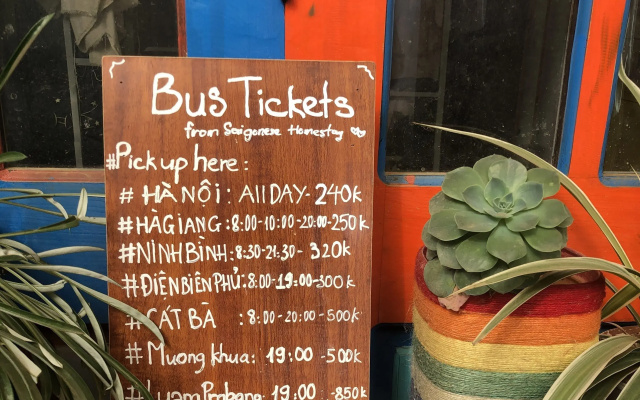 Bus Tickets
from Saigonese Homestay
#Pick up here:
# HÀ NỘI: All DAY- 240k
#HÀ GIANG:8:00-10:00-20:00-250k
#NINH BÌNH:8:30-21:30- 320k
#ĐIỆN BIÊN PHỦ:8:00-19:00-300k
# CÁT BÀ :8:00-20:00-500k
# Muong khua: 19:00 -500k
# Luam Prabang: 19:00 -850k